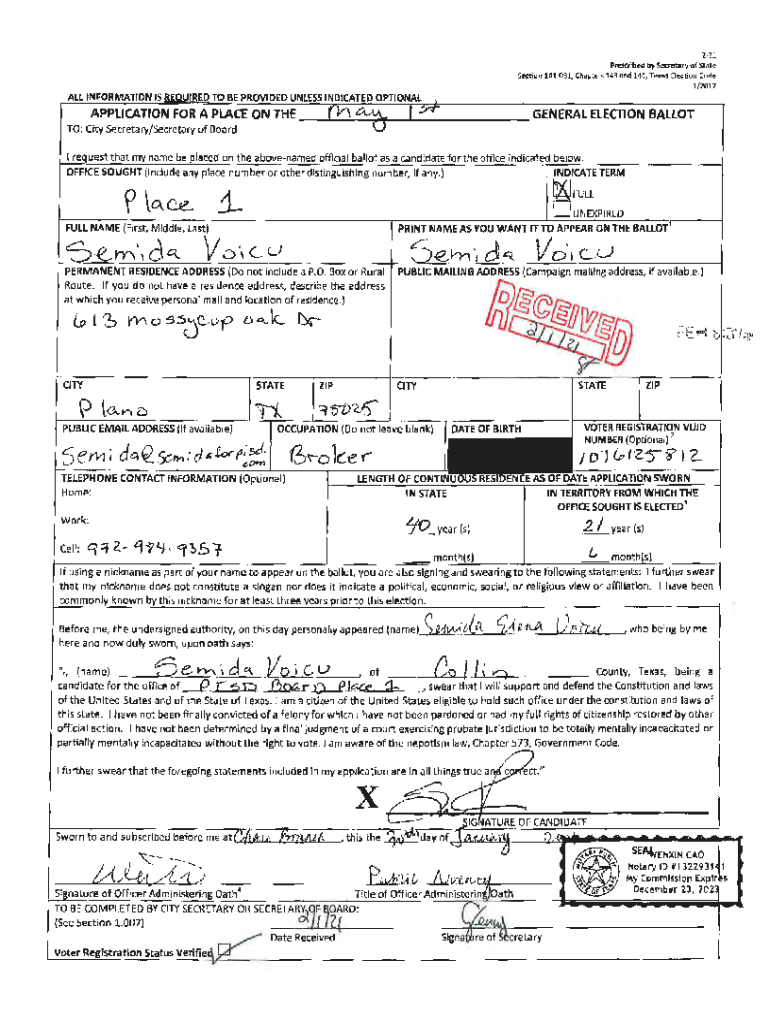 2-21
Prescribed by Secretary of State
Section 141.031, Chapters 143 and 144, Texas Election Code
1/2017
ALL INFORMATION IS REQUIRED TO BE PROVIDED UNLESS INDICATED OPTIONAL
APPLICATION FOR A PLACE ON THE May 1st GENERAL ELECTION BALLOT
TO: City Secretary/Secretary of Board
I request that my name be placed on the above-named official ballot as a candidate for the office indicated below.
OFFICE SOUGHT (Include any place number or other distinguishing number, if any.) INDICATE TERM
Place 1
X FULL
UNEXPIRED
FULL NAME (First, Middle, Last) PRINT NAME AS YOU WANT IT TO APPEAR ON THE BALLOT
Semida Voicu Semida Voicu
PERMANENT RESIDENCE ADDRESS (Do not include a P.O. Box or Rural Route. If you do not have a residence address, describe the address at which you receive personal mail and location of residence.) PUBLIC MAILING ADDRESS (Campaign mailing address, if available.)
613 mossycup oak Dr
RECEIVED
2/1/21
CITY STATE ZIP CITY STATE ZIP
Plano TX 75025
PUBLIC EMAIL ADDRESS (If available) OCCUPATION (Do not leave blank) DATE OF BIRTH VOTER REGISTRATION VUID NUMBER (Optional)2
Semida@semidaforpisd.com Broker 1016125812
TELEPHONE CONTACT INFORMATION (Optional) LENGTH OF CONTINUOUS RESIDENCE AS OF DATE APPLICATION SWORN
Home: IN STATE IN TERRITORY FROM WHICH THE OFFICE SOUGHT IS ELECTED3
Work: 40 year(s) 21 year(s)
Cell: 972-974-9357 month(s) 6 month(s)
If using a nickname as part of your name to appear on the ballot, you are also signing and swearing to the following statements: I further swear
that my nickname does not constitute a slogan nor does it indicate a political, economic, social, or religious view or affiliation. I have been
commonly known by this nickname for at least three years prior to this election.
Before me, the undersigned authority, on this day personally appeared (name) Semida Elena Voicu, who being by me
here and now duly sworn, upon oath says:
"I, (name) Semida Voicu, of Collin County, Texas, being a
candidate for the office of PISD Board Place 1, swear that I will support and defend the Constitution and laws
of the United States and of the State of Texas. I am a citizen of the United States eligible to hold such office under the constitution and laws of
this state. I have not been finally convicted of a felony for which I have not been pardoned or had my full rights of citizenship restored by other
official action. I have not been determined by a final judgment of a court exercising probate jurisdiction to be totally mentally incapacitated or
partially mentally incapacitated without the right to vote. I am aware of the nepotism law, Chapter 573, Government Code.
I further swear that the foregoing statements included in my application are in all things true and correct."
X
SIGNATURE OF CANDIDATE
Sworn to and subscribed before me at this the day of January
SEAL
WENXIN CAO
Notary ID #132293141
My Commission Expires
December 23, 2023
NOTARY PUBLIC
STATE OF TEXAS
Public
Signature of Officer Administering Oath4 Title of Officer Administering Oath
TO BE COMPLETED BY CITY SECRETARY OR SECRETARY OF BOARD:
(See Section 1.007) 2/1/21
Date Received Signature of Secretary
Voter Registration Status Verified